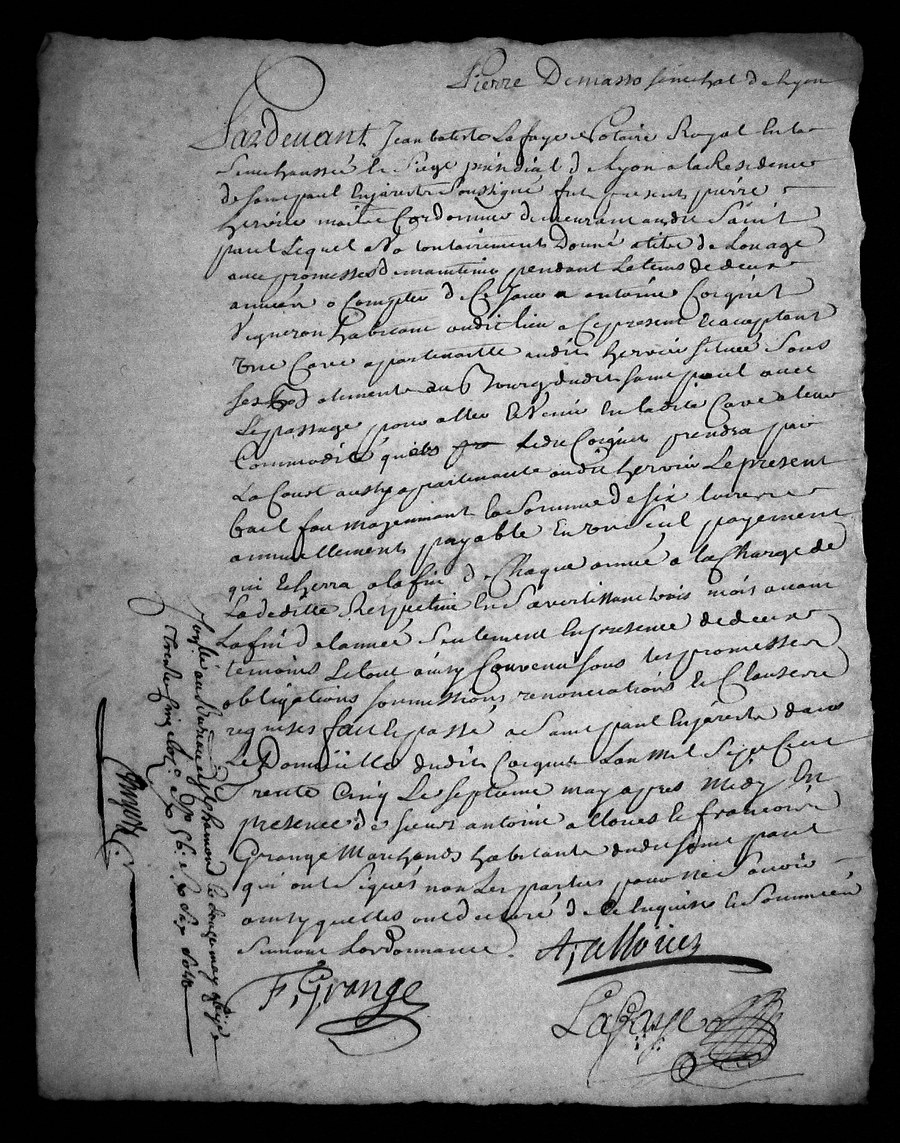 Pierre Demasso senechal de Lyon
Pardevant Jean batiste Lafaye Notaire Royal en la
Senechaussée le Siege presidial de Lyon a la Residence
de Saint paul En jarest Soussigné fut present pierre
hervier maitre Cordonnier demeurant audit Saint
paul Lequel a Volontairement Donné a titre de Louage
avec promesses de maintenir pendant Le tems de deux
années a Compter de Ce Jour a antoine Coignet
Vigneron habitant audit lieu a Ce present et acceptant
Une Cave appartenante audit hervier située Sous
ses batiments au Bourg dudit saint paul avec
Le passage pour aller et Venir En ladite Cave a leur
Commodité que ledit Coignet prendra par
La Court aussy appartenante audit hervier Le present
bail fait moyennant la Somme de six livres
annuellement payable En un seul payement
qui Echerra a la fin de Chaque année a la Charge de
La deditte Respective En S'avertissant trois mois avant
La fin de l'année Seulement En presence de deux
temoins Le tout ainsy Convenu sous les promesses
obligations soumissions renonciations et Clauses
requises fait et passé a Saint paul En jarest dans
Le Domicille dudit Coignet L'an Mil Sept Cent
trente Cinq Le septieme may apres Midy En
presence de sieurs antoine allouës et françois
Grange Marchands habitants dudit saint paul
qui ont Signés non Les parties pour ne Scavoir
ainsy qu'elles ont declaré de Ce Enquises et Sommées
Suivant L'ordonnance.
A, allouës
F, Grange
Lafaye
au Bureau de St Chamond le douze may
trente Cinq Six Sols